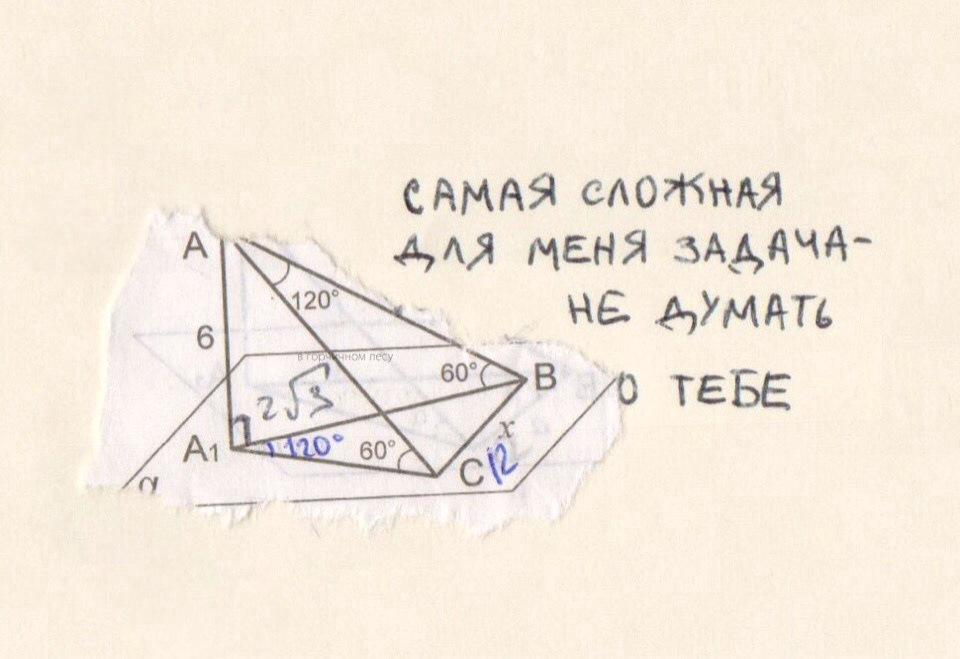 САМАЯ СЛОЖНАЯ
ДЛЯ МЕНЯ ЗАДАЧА-
НЕ ДУМАТЬ
О ТЕБЕ
A
120°
6
в горчичном лесу
60°
B
2√3
x
A₁
120°
60°
C
12
α